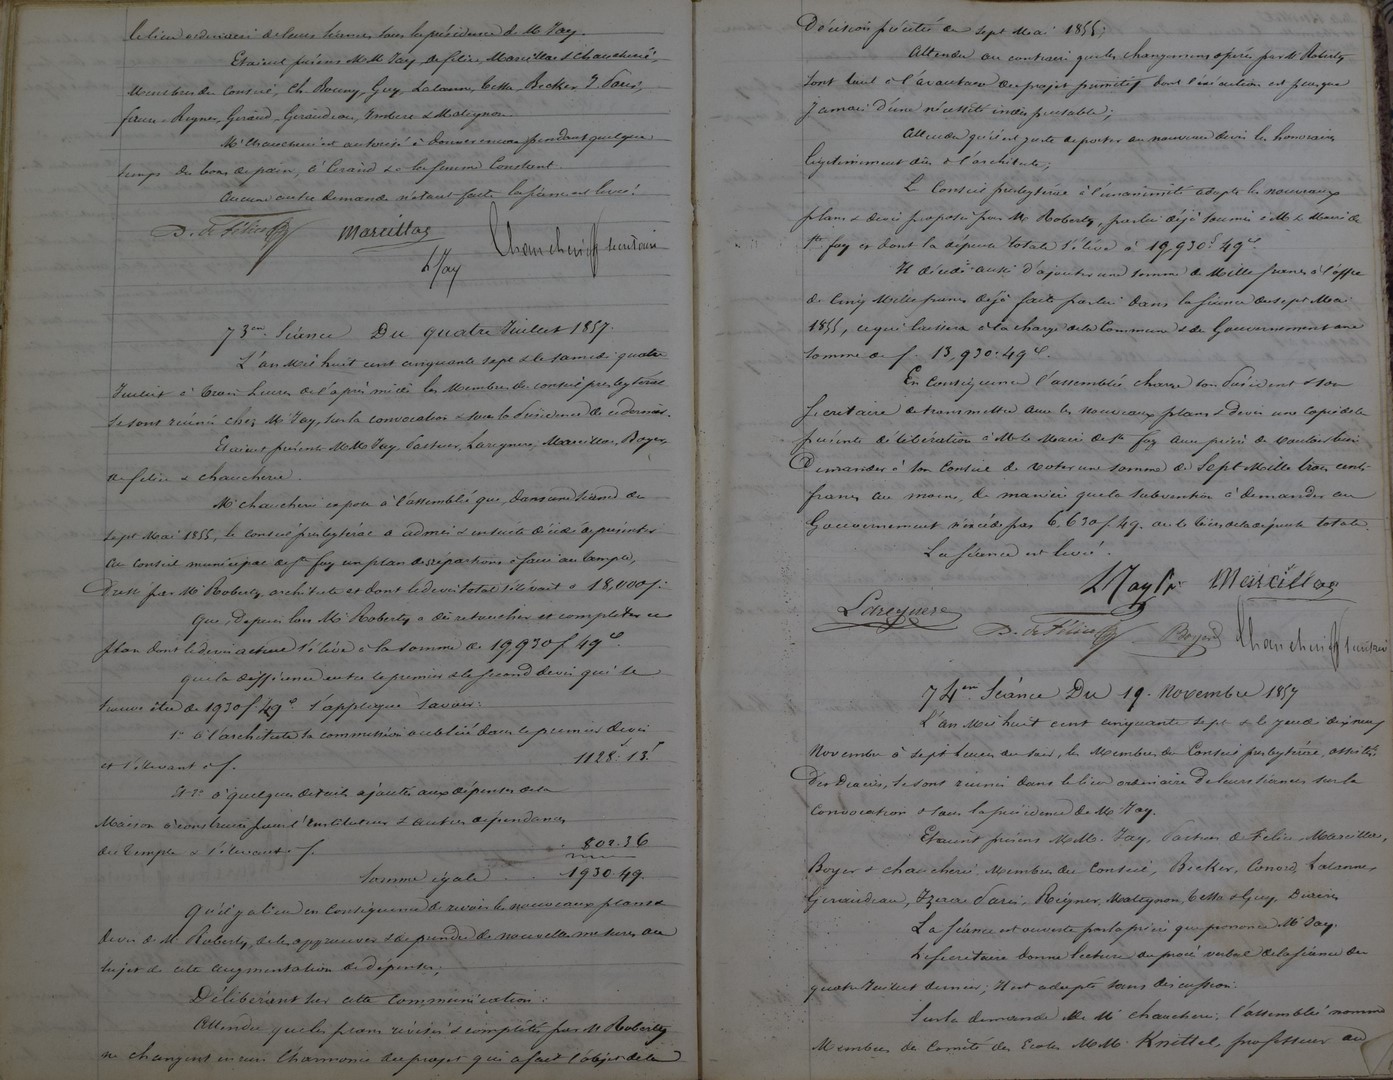 le lieu ordinaire de leurs séances sous la présidence de Mr Jay.
Etaient présens M.M. Jay, de Félice, Marcillas & Chaucherie,
Membres du Conseil, Ch. Boamy, Guy, Lalanne, Cette, Becker, J. Parie,
Reigner, Geraud, Geraudeau, & Matignon.
Mr Chaucherie est autorisé à donner encore pendant quelque
temps des bons de pain, à Ceraud & à la femme Constant.
Aucune autre demande n'étant faite la séance est levée.
D. de Félice Marcillas
L Jay Chaucherie secrétaire
73eme Séance Du quatre Juillet 1857.
L'an Mil huit cent cinquante sept & le samedi quatre
Juillet à trois heures de l'après midi les Membres du conseil presbytéral
se sont réunis chez Mr Jay, sur la convocation & sous la Présidence de ce dernier.
Etaient présents M.M. Jay, Pasteur, Laregnere, Marcillas, Boyer,
de félice & chaucherie.
Mr chaucherie expose à l'assemblée que, dans une séance du
sept Mai 1855, le conseil presbytéral a admis & ensuite décidé de présenter
au Conseil municipal de Ste foy un plan de réparations à faire au temple,
Dressé par Mr Roberty, architecte et dont le devis total s'élevait à 18,000 f.
Que, depuis lors Mr Roberty a dû retoucher et compléter ce
plan dont le devis actuel s'élève à la somme de 19,930 f 49 c.
que la différence entre le premier & le second devis qui se
trouve être de 1930 f 49 c s'applique savoir:
1° à l'architecte la commission oubliée dans le premier devis
et s'élevant à f. 1128.13.
Et 2° à quelques details ajoutés aux dépenses de la
Maison à construire pour l'instituteur & autres dépendances
du Temple & s'élevant à f. 802.36
Somme égale .. 1930.49.
Qu'il y a lieu en conséquence de revoir les nouveaux plans &
devis de Mr Roberty, de les approuver & de prendre de nouvelles mesures au
sujet de cette augmentation de dépenses;
Délibérant sur cette communication:
Attendu que les plans révisés & complétés par Mr Roberty
ne changent en rien l'harmonie du projet qui a fait l'objet de la
Décision précitée du sept Mai 1855;
Attendu au contraire que les changements opérés par Mr Roberty
sont tout à l'avantage du projet primitif dont l'exécution est presque
jamais d'une nécessité indispensable;
Attendu qu'il est juste de porter au nouveau devis les honoraires
légitimement dûs à l'architecte;
Le Conseil presbytéral à l'unanimité adopte les nouveaux
plans & devis proposés par Mr Roberty, par lui déjà soumis à Mr le Maire de
Ste foy et dont la dépense totale s'élève à 19,930 f 49 c.
Il décide aussi d'ajouter une somme de Mille francs à l'offre
de Cinq Mille francs déjà faite par lui dans la séance du sept Mai
1855, ce qui laissera à la charge de la Commune & du Gouvernement une
somme de f. 13,930.49 c.
En conséquence l'assemblée charge son Président & son
Secrétaire de transmettre avec les nouveaux plans & devis une copie de la
présente délibération à Mr le Maire de Ste foy avec prière de vouloir bien
Demander à son Conseil de voter une somme de Sept Mille trois cents
francs au moins, de manière que la subvention à demander au
Gouvernement n'excède pas 6,630 f. 49. ou le tiers de la dépense totale.
La séance est levée.
L Jay Pr Marcillas
Laregnere D. de Félice Boyer Chaucherie secrétaire
74eme Séance Du 19. Novembre 1857
L'an Mil huit cent cinquante sept & le jeudi dix neuf
Novembre à sept heures du soir, les Membres du Conseil presbytéral, assistés
Des Diacres, se sont réunis dans le lieu ordinaire de leurs séances sur la
Convocation & sous la présidence de Mr Jay.
Etaient présens M.M. Jay, Pasteur, de Félice, Marcillas,
Boyer & chaucherie, Membres du Conseil, Becker, Conord, Lalanne,
Geraudeau, Izaac Parie, Reigner, Matignon, Cette & Guy, Diacres
La séance est ouverte par la prière que prononce Mr Jay.
Le secrétaire donne lecture du procès verbal de la séance du
quatre Juillet dernier; il est adopté sans discussion.
Sur la demande de Mr chaucherie, l'assemblée nomme
Membres du Comité des Ecoles M.M. Knittel, professeur au